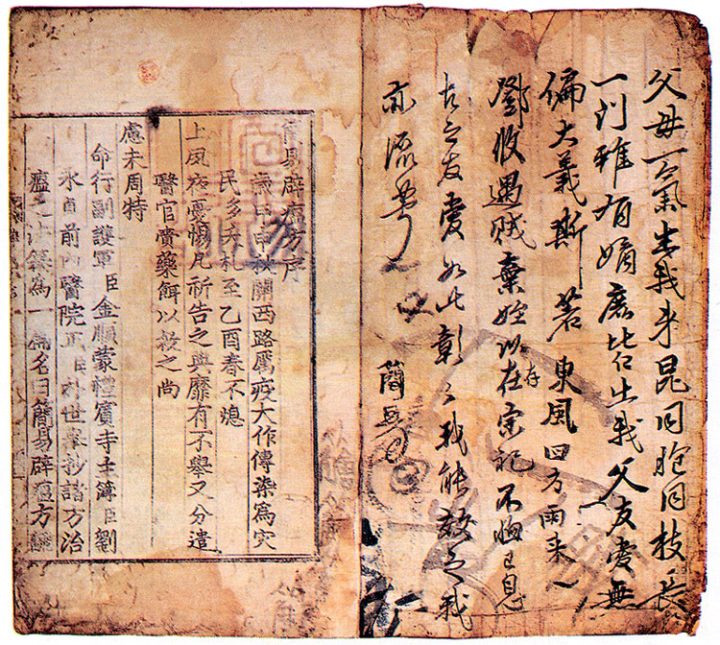 父母一氣生我來昆同胞同枝長
一門雖有嫡庶 出我父友愛無
偏大義斯著東風四方雨來
鄧收遇賊棄姪以存宗祀不 已息
古之友愛如此彰之我能效之我
亦流芳
簡易辟瘟方序
歲甲申秋關西路厲疫大作傳染爲灾
民多夭札至乙酉春不熄
上夙夜憂惕凡祈告之典靡有不擧又分遣
醫官賚藥餌以救之尚
慮未周特
命行副護軍臣金順蒙禮賓寺主簿臣劉
永貞前內醫院正臣朴世擧抄諸方治
瘟之法集爲一篇名曰簡易辟瘟方